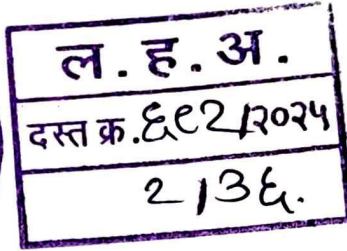 ल. ह. अ.
दस्त क्र. ६९२/२०२५
२/३६.